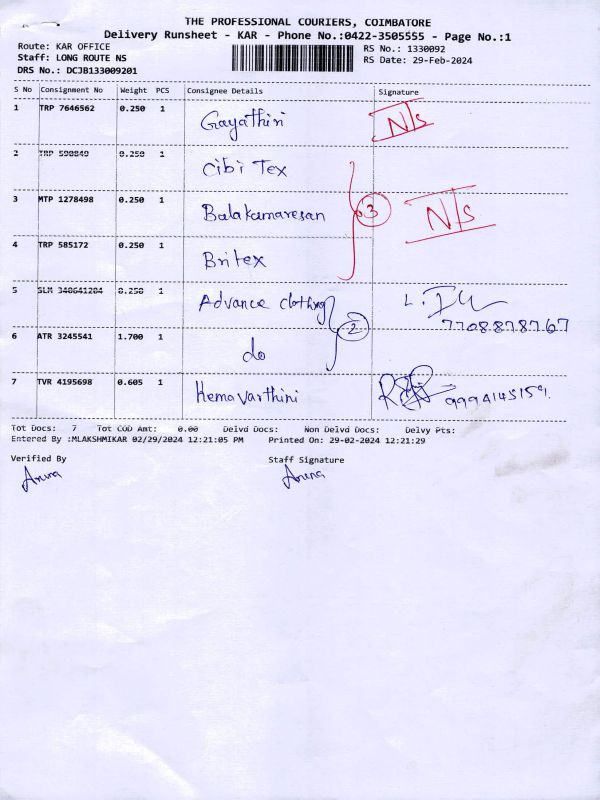 THE PROFESSIONAL COURIERS, COIMBATORE
Delivery Runsheet - KAR - Phone No.:0422-3505555 - Page No.:1
Route: KAR OFFICE RS No.: 1330092
Staff: LONG ROUTE NS RS Date: 29-Feb-2024
DRS No.: DCJB133009201
S No Consignment No Weight PCS Consignee Details Signature
1 TRP 7646562 0.250 1 Gayathiri N/S
2 TRP 590849 0.250 1 Cibi Tex
3 MTP 1278498 0.250 1 Balakumaresan 3 N/S
4 TRP 585172 0.250 1 Britex
5 SLM 340641204 0.250 1 Advance clothing
7708878767
6 ATR 3245541 1.700 1 do 2
7 TVR 4195698 0.605 1 Hemavarthini 9994145159.
Tot Docs: 7 Tot COD Amt: 0.00 Delvd Docs: Non Delvd Docs: Delvy Pts:
Entered By :MLAKSHMIKAR 02/29/2024 12:21:05 PM Printed On: 29-02-2024 12:21:29
Verified By Staff Signature
Aruna Aruna